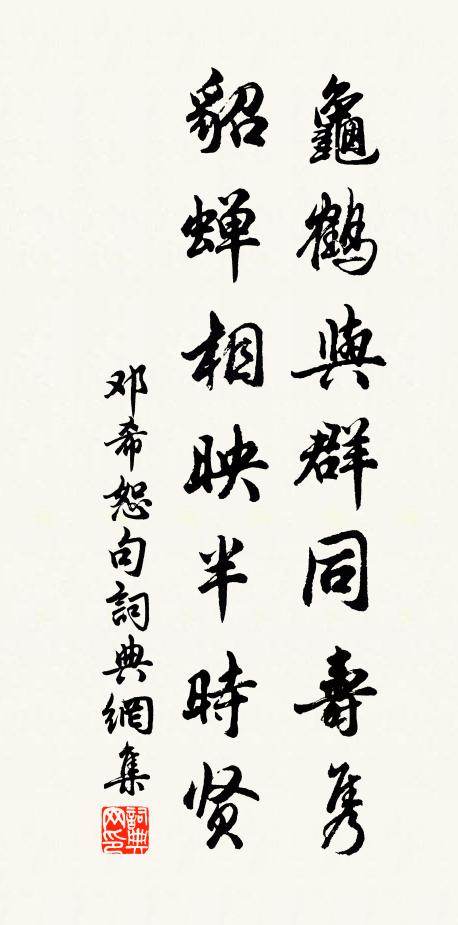 龜鶴與群同壽隽
貂蟬相映半時贤
邓希恕句詞典網集
詞典网印